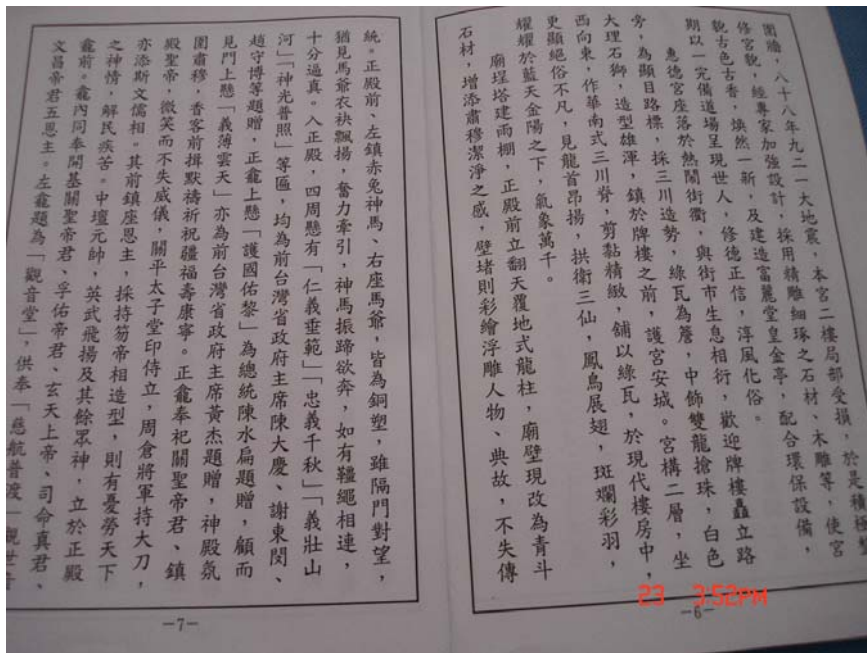 圍牆，八十八年九二一大地震，本宮二樓局部受損，於是積極整
修宮貌，經專家加強設計，採用精雕細琢之石材、木雕等，使宮
貌古色古香，煥然一新，及建造富麗堂皇金亭，配合環保設備，
期以一完備道場呈現世人，修德正信，淳風化俗。
惠德宮座落於熱鬧街衢，與街市生息相衍，歡迎牌樓矗立路
旁，為顯目路標，採三川造勢，綠瓦為簷，中飾雙龍搶珠，白色
大理石獅，造型雄渾，鎮於牌樓之前，護宮安城。宮構二層，坐
西向東，作華南式三川脊，剪黏精緻，舖以綠瓦，於現代樓房中，
更顯絕俗不凡，見龍首昂揚，拱衛三仙，鳳鳥展翅，斑斕彩羽，
耀耀於藍天金陽之下，氣象萬千。
廟埕塔建雨棚，正殿前立翻天覆地式龍柱，廟壁現改為青斗
石材，增添肅穆潔淨之感，壁堵則彩繪浮雕人物、典故，不失傳
-6-
23 3:52PM
統。正殿前、左鎮赤兔神馬、右座馬爺，皆為銅塑，雖隔門對望，
猶見馬爺衣袂飄揚，奮力牽引，神馬振蹄欲奔，如有韁繩相連，
十分逼真。入正殿，四周懸有「仁義垂範」「忠義千秋」「義壯山
河」「神光普照」等匾，均為前台灣省政府主席陳大慶 謝東閔、
趙守博等題贈，正龕上懸「護國佑黎」為總統陳水扁題贈，顧而
見門上懸「義薄雲天」亦為前台灣省政府主席黃杰題贈，神殿氛
圍肅穆，香客前揖默禱祈祝疆福壽康寧。正龕奉祀關聖帝君、鎮
殿聖帝，微笑而不失威儀，關平太子堂印侍立，周倉將軍持大刀，
亦添斯文儒相。其前鎮座恩主，採持笏帝相造型，則有憂勞天下
之神情，解民疾苦。中壇元帥，英武飛揚及其餘眾神，立於正殿
龕前。龕內同奉開基關聖帝君、孚佑帝君、玄天上帝、司命真君、
文昌帝君五恩主。左龕題為「觀音堂」，供奉「慈航普渡」觀世音
-7-